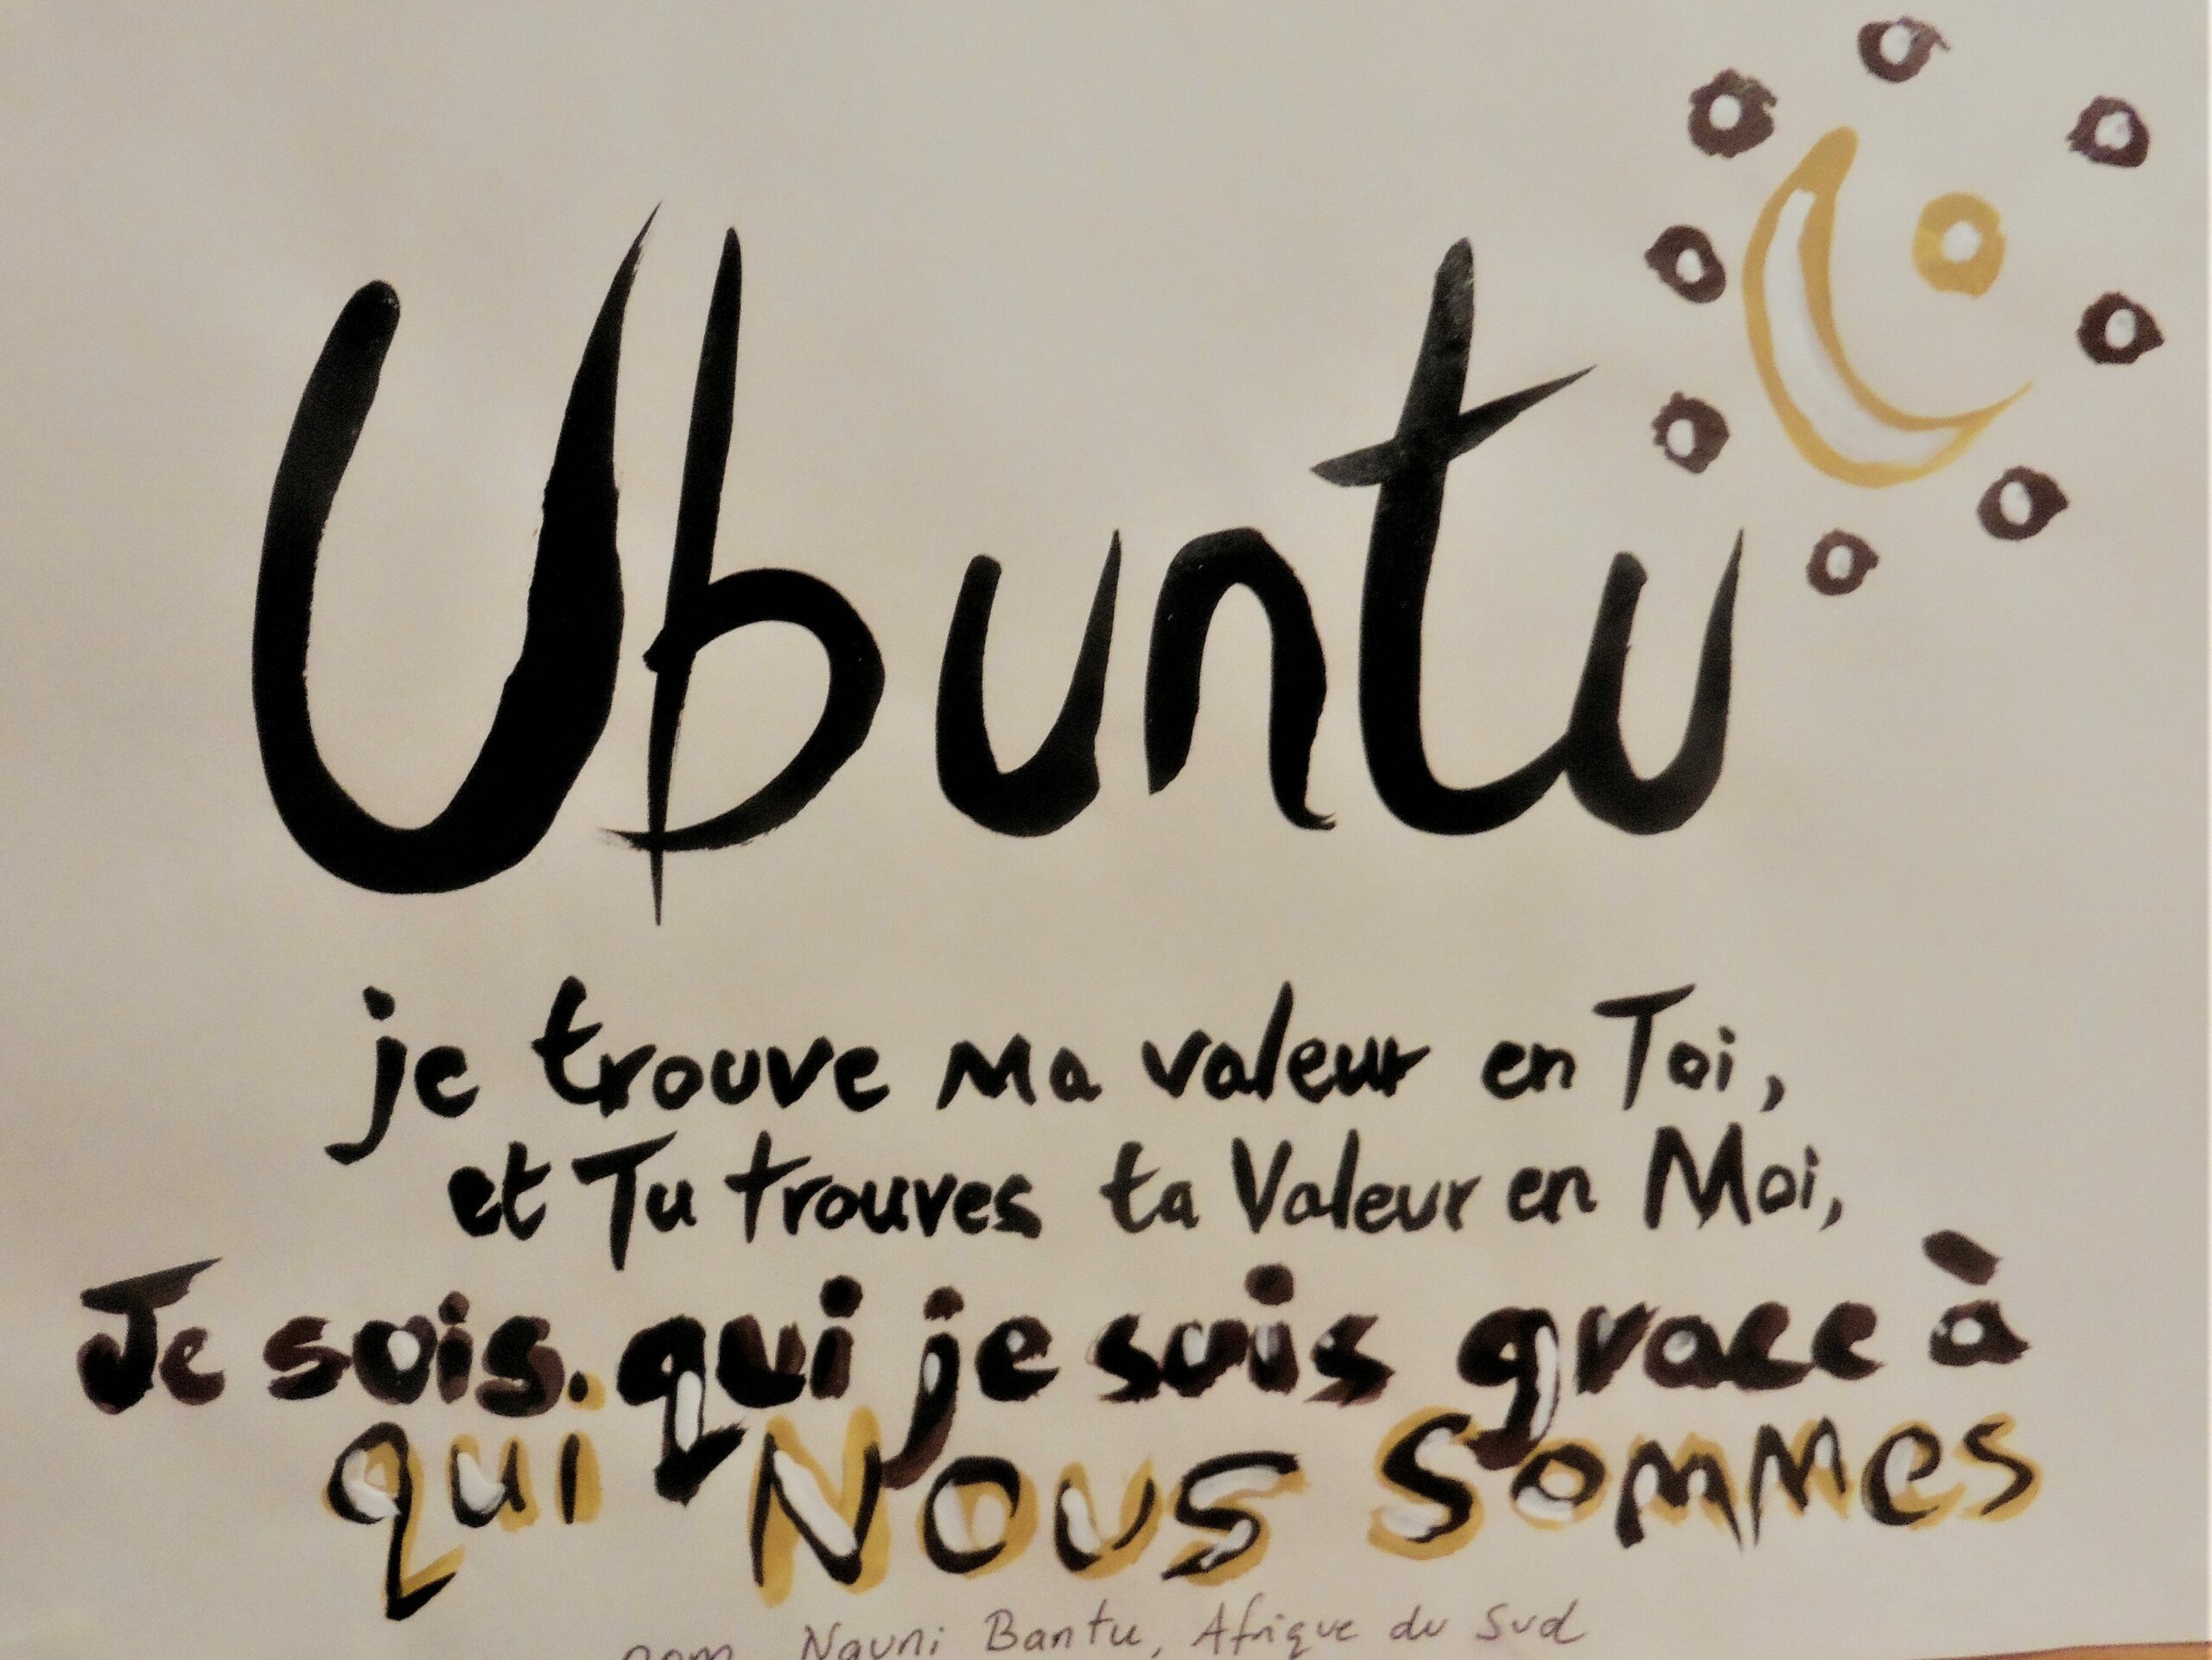 Ubuntu
je trouve ma valeur en Toi,
et Tu trouves ta Valeur en Moi,
Je sois. qui je suis grace à
qui Nous Sommes
nom Nguni Bantu, Afrique du Sud